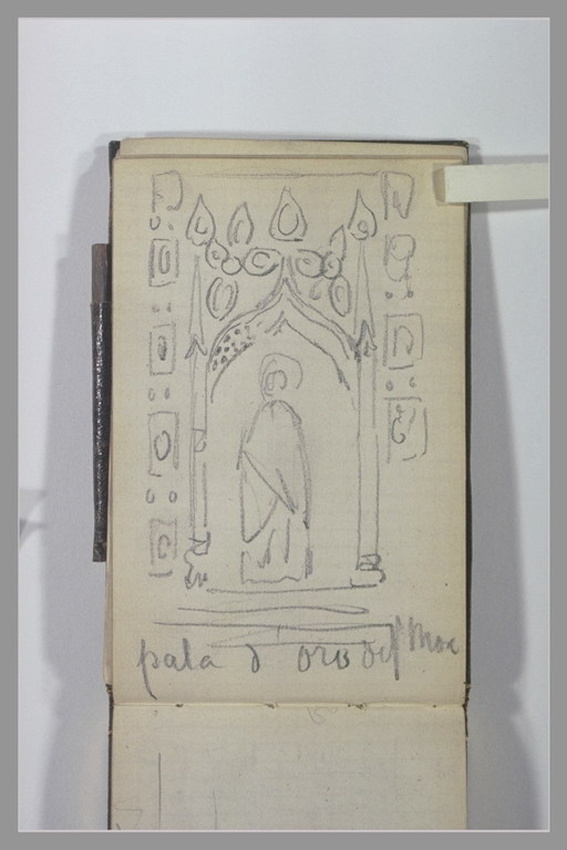 pala d oro de St Marc